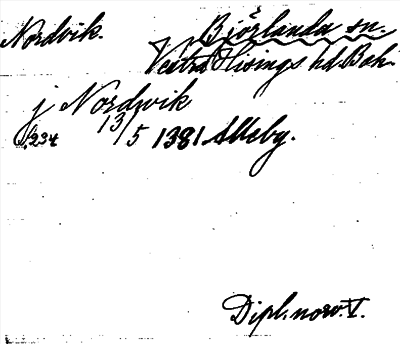 Nordvik. Björlanda sn.
Västra Hisings hd. Boh.
j Nordwik
s. 234 13/5 1381 Alleby.
Dipl. norv. V.